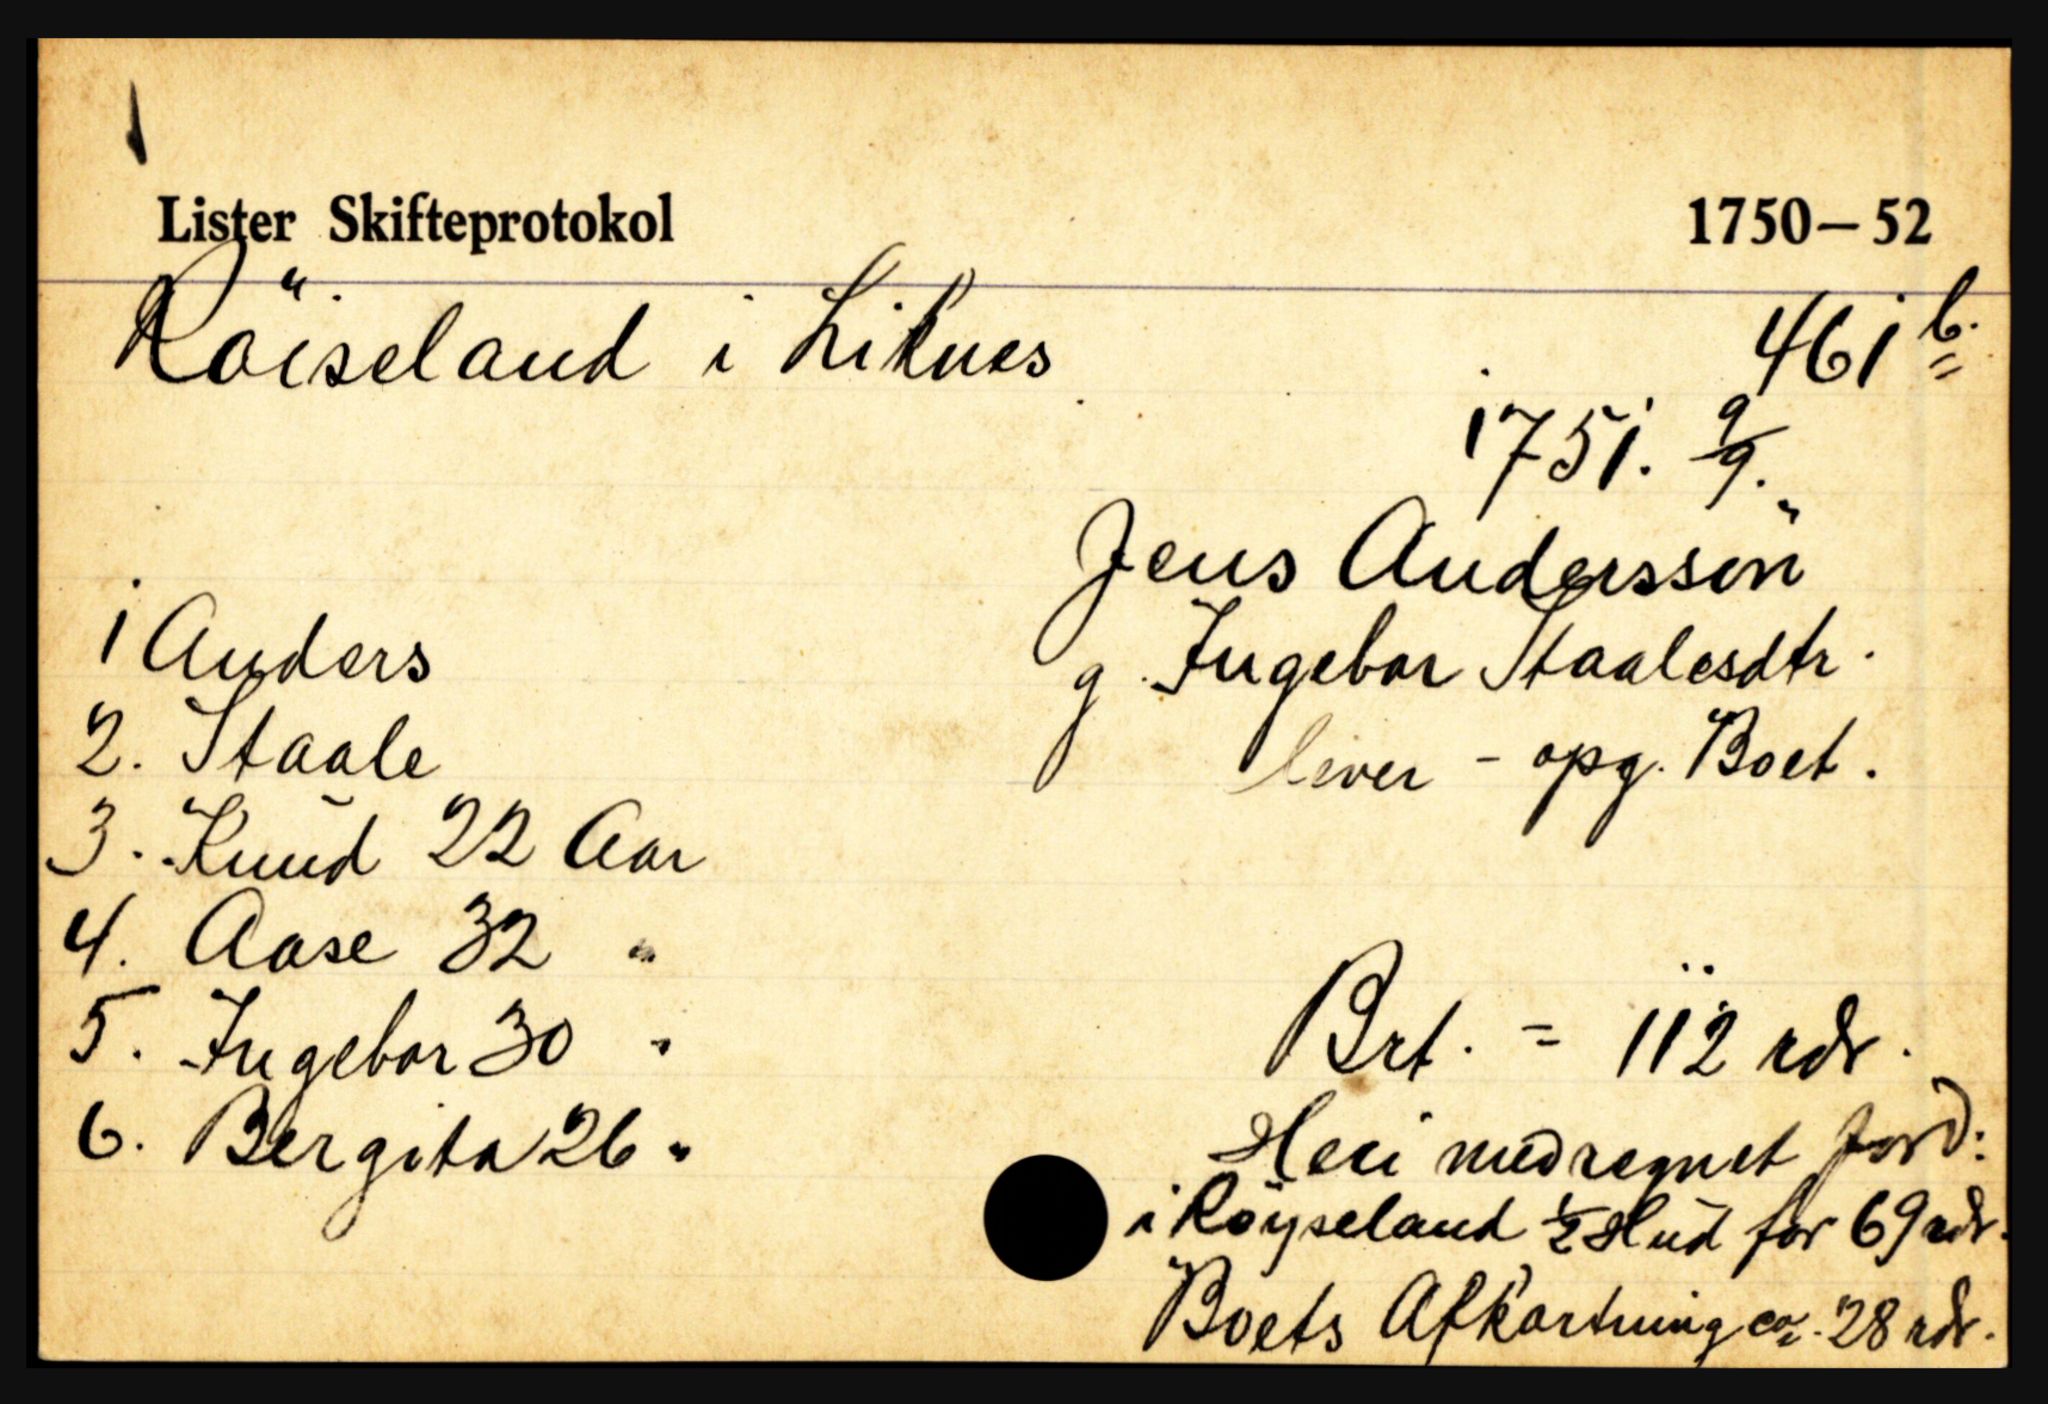 Lister Skifteprotokol 1750–52
Röiseland i Liknes
461 b.
1751. 9/9.
Jens Anderssön
g. Ingebor Staalesdtr.
lever - opg. Boet.
1 Anders
2. Staale
3. Knud 22 Aar
4. Aase 32 "
5. Ingebor 30 "
6. Bergita 26 "
Brt. = 112 rdr.
Heri medregnet Jord:
i Röyseland 1/2 Hud for 69 rdr.
Boets Afkortning ca. 28 rdr.